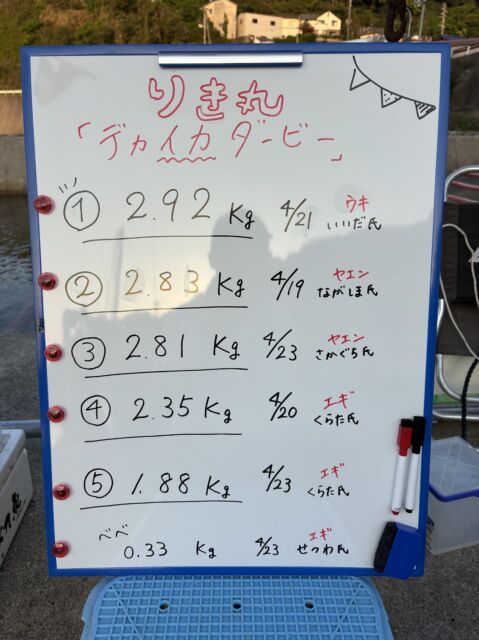 りき丸
「デカイカダービー」
① 2.92 Kg 4/21 ウキ いいだ氏
② 2.83 Kg 4/19 ヤエン ながしま氏
③ 2.81 Kg 4/23 ヤエン さかぐち氏
④ 2.35 Kg 4/20 エギ くらた氏
⑤ 1.88 Kg 4/23 エギ くらた氏
べべ 0.33 Kg 4/23 エギ せつわ氏